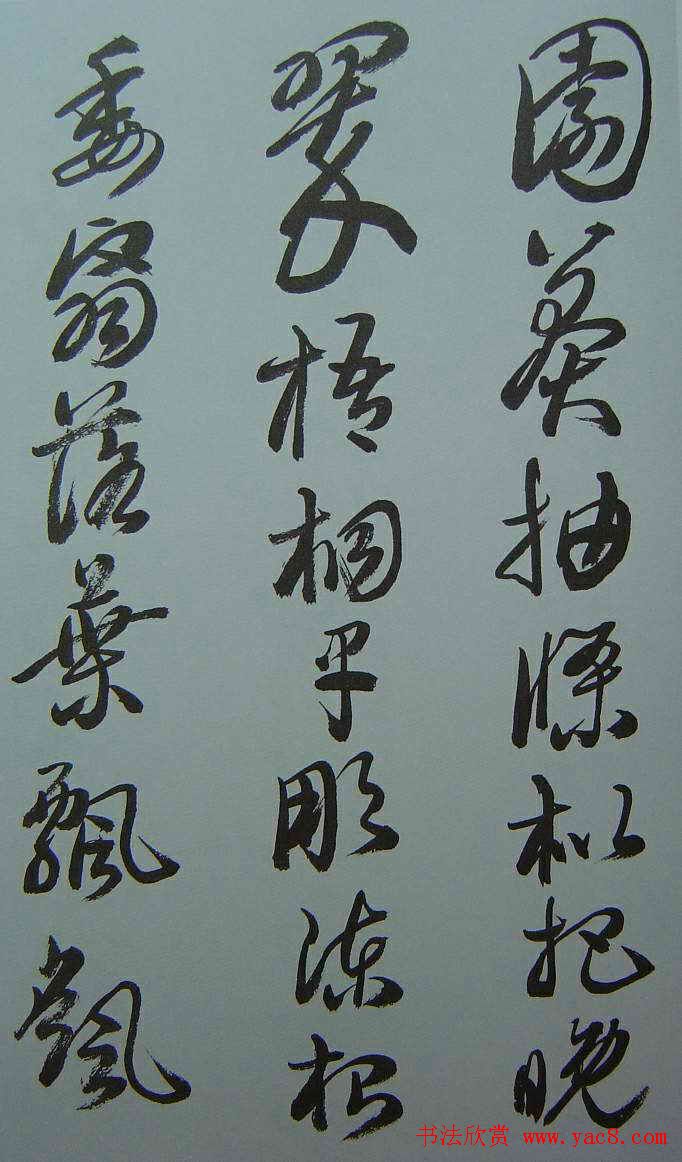 園莽抽條枇杷晚
翠梧桐早彫陳根
委翳落葉飄颻
书法欣赏 www.yac8.com